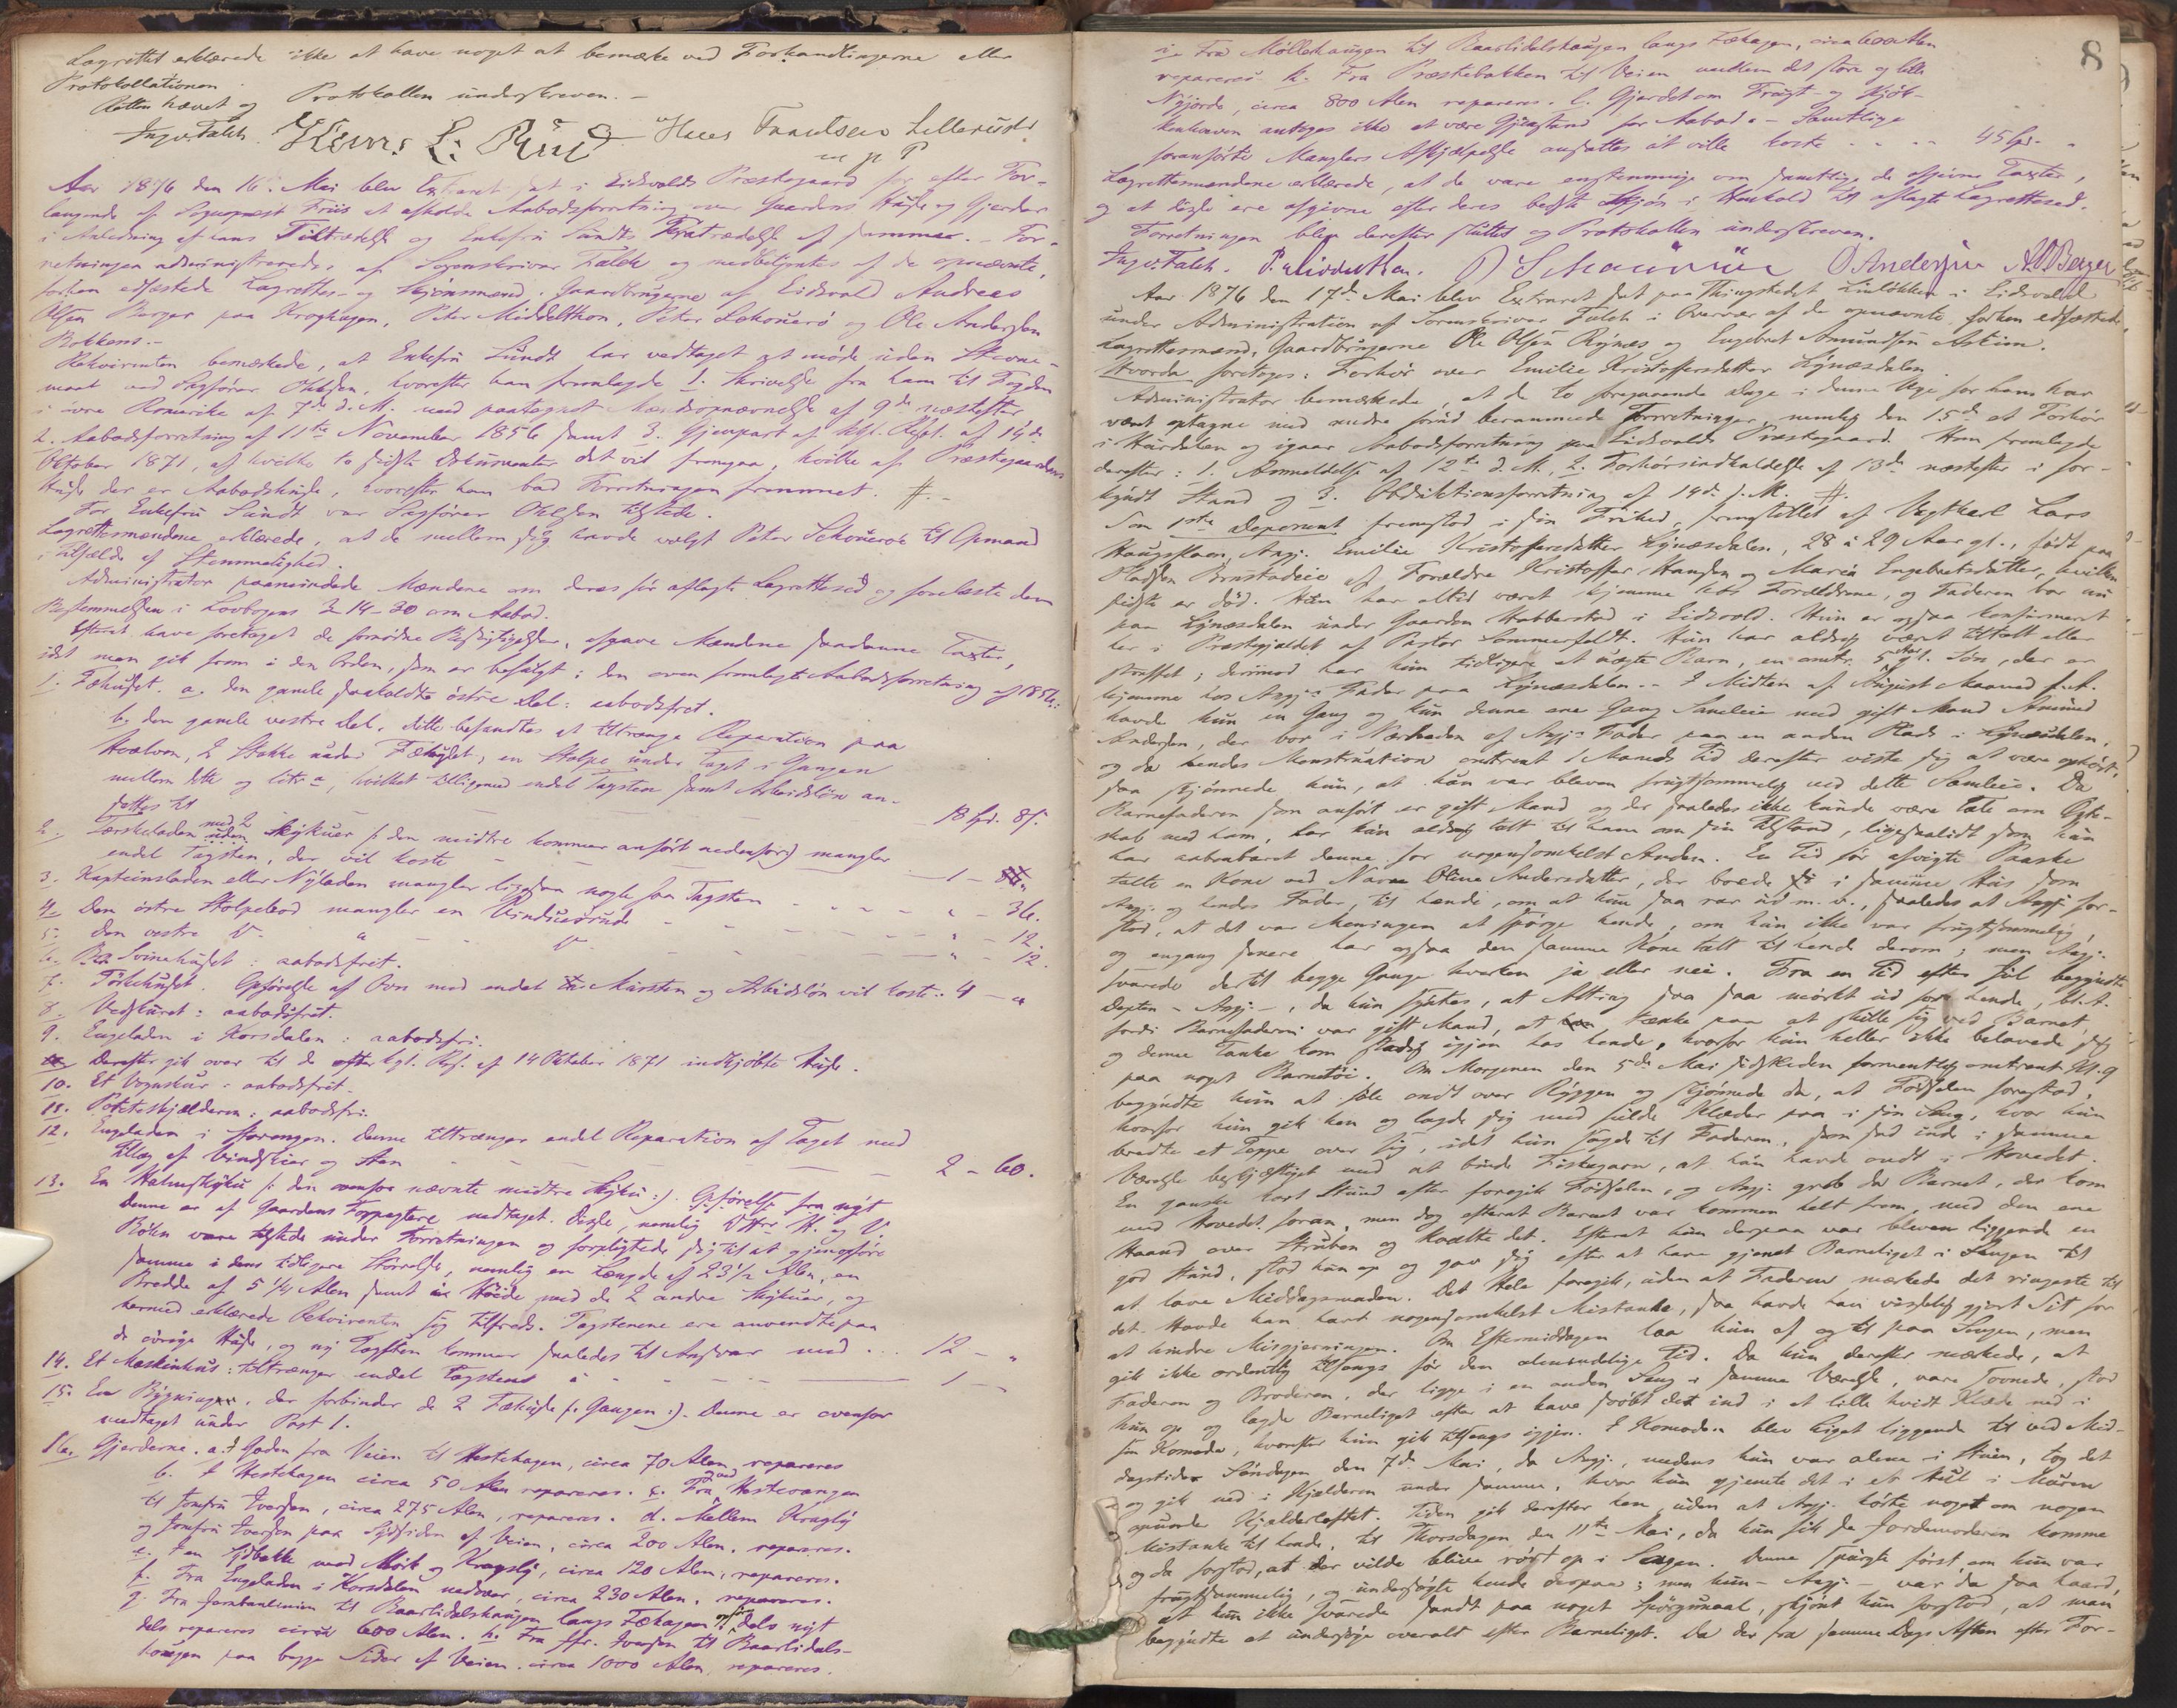 Lagrettet erklærede ikke at have noget at bemærke ved Forhandlingerne eller
Protokollationen.
Retten hævet og Protokollen underskreven. –
Ingv. Falch. Hans L: Ruud Hans Frantsen Lillerustd
m p P
Aar 1876 den 16de Mai blev Extraret sat i Eidsvolds Præstegaard for efter For-
langende af Sognepræst Friis at afholde Aabodsforretning over Gaardens Huse og Gjerder
i Anledning af hans Tiltrædelse og Enkefru Sundts Fratrædelse af samme. – For-
retningen administreredes af Sorenskriver Falch og medbetjentes af de opnævnte,
forhen edfæstede Lagrettes- og Skjønsmænd: Gaardbrugerne af Eidsvold Andreas
Olsen Berger paa Kroghagen, Peter Middelthon, Peter Schouerö og Ole Andersen
Bokkens. –
Rekvirenten bemærkede, at Enkefru Sundt har vedtaget at møde uden Stevne-
maal ved Sagfører Ottesen, hvorefter han fremlagde 1. Skrivelse fra ham til Fogden
i övre Romerike af 7de d. M. med paategnet Mændsopnævnelse af 9de næstefter
2. Aabodsforretning af 11te November 1856 samt 3. Gjenpart af kgl. Resol. af 14de
Oktober 1871, af hvilke to sidste Dokumenter det vil fremgaa, hvilke af Præstegaardens
Huse der er Aabodshuse, hvorefter han bad Forretningen fremmet. #. –
For Enkefru Sundt var Sagfører Ottesen tilstede.
Lagrettesmændene erklærede, at de mellem sig havde valgt Peter Schouerö til Opmand
i Tilfælde af Stemmelighed.
Administrator paamindede Mændene om deres før aflagte Lagrettesed og foreleste dem
Bestemmelsen i Lovbogens 3-14-30 om Aabod.
Efterat have foretaget de fornødne Besigtigelser, afgave Mændene saadanne Taxter,
idet man gik frem i den Orden, som er befulgt i den oven fremlagte Aabodsforretning af 1856:
1. Fæhuset. a. den gamle saakaldte östre Del: aabodsfrit.
b. den gamle vestre Del. dette befandtes at tiltrænge Reparation paa
Hvælven, 2 Stokke under Fæhuset, en Stolpe under Taget i Gangen
mellem dette og litr a, hvilket tilligemed endel Tagsten samt Arbeidsløn an-
sattes til 18 spd. 8 s.
2. Tærskeladen med 2 uden Skykuer (: den midtre kommer anført nedenfor) mangler
endel Tagsten, der vil koste – – – 1 –
3. Kapteinsladen eller Nyladen mangler ligesom nogle faa Tagsten – – – „ – 36.
4. Den östre Stolpebod mangler en Vinduesrude – – – „ – 12.
5. Den vestre D. „ D. – – – „ – 12.
6. Svinehuset: aabodsfrit.
7. Törkehuset. Opførelse af Ovn med endel Mursten og Arbeidsløn vil koste: 4 – „
8. Vedskuret: aabodsfrit.
9. Engeladen i Korsdalen: aabodsfri.
Derefter gik over til de efter kgl. Res. af 14 Oktober 1871 indkjøbte Huse.
10. Et Vognskur: aabodsfrit.
11. Potetskjælderen: aabodsfri:
12. Engeladen i Storengen. denne tiltrænger endel Reparation af Taget med
Tillæg af Vindskier og Sten – – – 2 – 60.
13. En Halmskyku (: den ovenfor nævnte midtre Skyku :). Opførelse fra nyt
Denne er af Gaardens Forpagtere nedtaget. Disse, nemlig DHrr H. og V.
Böhn vare tilstede under Forretningen og forpligtede sig til at gjenopføre
samme i dens tidligere Størrelse, nemlig en Længde af 23½ Alen, en
Bredde af 5¼ Alen samt i Høide med de 2 andre Skykuer, og
hermed erklærede Rekvirenten sig tilfreds. Tagstenene ere anvendte paa
de övrige Huse, og ny Tagsten kommer saaledes til Ansvar med . . . 12 – „
14. Et Maskinhus: tiltrænger endel Tagsten à – – – 1 –
15. En Bygning, der forbinder de 2 Fæhuse (: Gangen :). Denne er ovenfor
medtaget under Post 1.
16. Gjerderne. a. Gaden fra Veien til Hestehagen, circa 70 Alen repareres
b. I Hestehagen circa 50 Alen repareres. c. Fra Hestevangen
til Jomfru Iversen, circa 275 Alen, repareres. d. Mellem Kragly
og Jomfru Iversen paa Sydsiden af Veien, circa 200 Alen, repareres.
e. I en Lidbakke mod Moik og Kragsly, circa 120 Alen, repareres.
f. Fra Engeladen i Korsdalen nedover, circa 230 Alen, repareres.
g. Fra Jernbanelinien til Baarlidalshaugen langs Fæhagen dels nyt
dels repareres circa 600 Alen. h. Fra Jfr. Iversen til Baarlidals-
haugen paa begge Sider af Veien. circa 1000 Alen, repareres.
8
i. Fra Møllehaugen til Baarlidalshaugen langs Fæhagen, circa 600 Alen
repareres. k. Fra Præstebakken til Veien mellem det store og lille
Nyjorde, circa 800 Alen repareres. l. Gjerdet om Frugt- og Kjök-
kenhaven antages ikke at være Gjenstand for Aabod. – Samtlige
foranførte Manglers Afhjælpelse ansattes at ville koste . . . 45 Spd. „
Lagrettesmændene erklærede, at de vare enstemmige om samtlige de afgivne Taxter,
og at disse ere afgivne efter deres bedste Skjøn i Henhold til aflagte Lagrettesed.
Forretningen blev derefter sluttet og Protokollen underskreven.
Ingv. Falch. P. Middelthon. P Schouerüe O Andersen A O Berger
Aar 1876 den 17de Mai blev Extraret sat paa Thingstedet Linløkken i Eidsvold
under Administration af Sorenskriver Falch i Overvær af de opnævnte, forhen edfæstede
Lagrettesmænd, Gaardbrugerne Ole Olsen Rynæs og Engebret Amundsen Askim.
Hvorda foretoges: Forhör over Emilie Kristoffersdatter Lynæsdalen.
Administrator bemærkede, at de to foregaaende Dage i denne Uge for ham har
været optagne med andre forud berammede Forretninger, nemlig den 15de et Forhör
i Hurdalen og igaar Aabodsforretning paa Eidsvolds Præstegaard. Han fremlagde
derefter: 1. Anmeldelse af 12te d. M., 2. Forhörsindkaldelse af 13de næstefter i for-
kyndt Stand og 3. Obduktionsforretning af 14de s. M. #.
Som 1ste Deponent fremstod i sin Frihed, fremstillet af Vegtkarl Lars
Haugsloen, Angj. Emilie Kristoffersdatter Lynæsdalen, 28 à 29 Aar gl., født paa
Pladsen Brustadeie af Forældre Kristoffer Hansen og Maria Engebretsdatter, hvilken
sidste er död. Hun har altid været hjemme hos Forældrene, og Faderen bor nu
paa Lynæsdalen under Gaarden Habberstad i Eidsvold. Hun er ogsaa konfirmeret
her i Præstegjeldet af Pastor Sommerfeldt. Hun har aldrig været tiltalt eller
straffet; derimod har hun tidligere et uægte Barn, en omtr. 5 Aar gl. Søn, der er
hjemme hos Angj:s Fader paa Lynæsdalen. – I Midten af August Maaned f. A.
havde hun en Gang og kun denne ene Gang Samleie med gift Mand Amund
Andersen, der bor i Nærheden af Angj:s Fader paa en anden Plads i Lynæsdalen,
og da hendes Menstruation omtrent 1 Maaneds Tid derefter viste sig at være ophört,
saa skjönnede hun, at hun var bleven frugtsommelig ved dette Samleie. Da
Barnefaderen som anført er gift Mand og der saaledes ikke kunde være Tale om Ægte-
skab med ham, har hun aldrig talt til ham om sin Tilstand, ligesaalidt som hun
har aabenbaret denne for nogensomhelst Anden. En Tid før afvigte Paaske
talte en Kone ved Navn Oline Andersdatter, der boede i samme Hus som
Angj. og hendes Fader, til hende, om at hun saa rar ud m. v., saaledes at Angj. for-
stod, at det var Meningen at spørge hende, om hun ikke var frugtsommelig,
og engang senere har ogsaa den samme Kone talt til hende derom; men Angj.
svarede dertil begge Gange hverken ja eller nei. Fra en Tid efter Jul begyndte
Depten – Angj. –, da hun syntes, at Alting saa saa mörkt ud for hende, bl. A.
fordi Barnefaderen var gift Mand, at tænke paa at skille sig ved Barnet,
og denne Tanke kom stadig igjen hos hende, hvorfor hun heller ikke belavede sig
paa noget Barnetöi. Om Morgenen den 5de Mai sidstleden formentlig omtrent Kl. 9
begyndte hun at føle ondt over Ryggen og skjönnede da, at Fødselen forestod,
hvorfor hun gik hen og lagde sig med fulde Klæder paa i sin Seng, hvor hun
bredte et Teppe over sig, idet hun sagde til Faderen, som sad inde i samme
Værelse beskjæftiget med at binde Fiskegarn, at hun havde ondt i Hovedet.
En ganske kort Stund efter foregik Fødselen, og Angj. greb da Barnet, der kom
med Hovedet foran, men dog efterat Barnet var kommen helt frem, med den ene
Haand over Struben og kvalte det. Efterat hun derpaa var bleven liggende en
god Stund, stod hun op og gav sig efter at have gjemt Barneliget i Sengen til
at lave Middagsmaden. Det Hele foregik, uden at Faderen mærkede det ringeste til
det. Havde han havt nogensomhelst Mistanke, saa havde han visselig gjort Sit for
at hindre Misgjerningen. Om Eftermiddagen laa hun af og til paa Sengen, men
gik ikke ordentlig tilsengs før den almindelige Tid. Da hun derefter mærkede, at
Faderen og Broderen, der ligge i en anden Seng i samme Værelse, vare sovnede, stod
hun op og lagde Barneliget efter at have svøbt det ind i et lille hvidt Klæde ned i
sin Komode, hvorefter hun gik tilsengs igjen. I Komoden blev Liget liggende til ved Mid-
dagstider Söndagen den 7de Mai, da Angj., medens hun var alene i Stuen, tog det
og gik ned i Kjelderen under samme, hvor hun gjemte det i et Hul i Muren
opunder Kjelderloftet. Tiden gik derefter hen, uden at Angj. hørte noget om nogen
Mistanke til hende, til Thorsdagen den 11te Mai, da hun fik se Jordemoderen komme
og da forstod, at der vilde blive rørt op i Sagen. Denne spurgte først om hun var
frugtsommelig, og undersøgte hende derpaa; men hun – Angj. – var da saa haard,
at hun ikke svarede sandt paa noget Spørgsmaal, skjönt hun forstod, at man
begyndte at undersøge overalt efter Barneliget. Da der fra samme Dags Aften efter For-